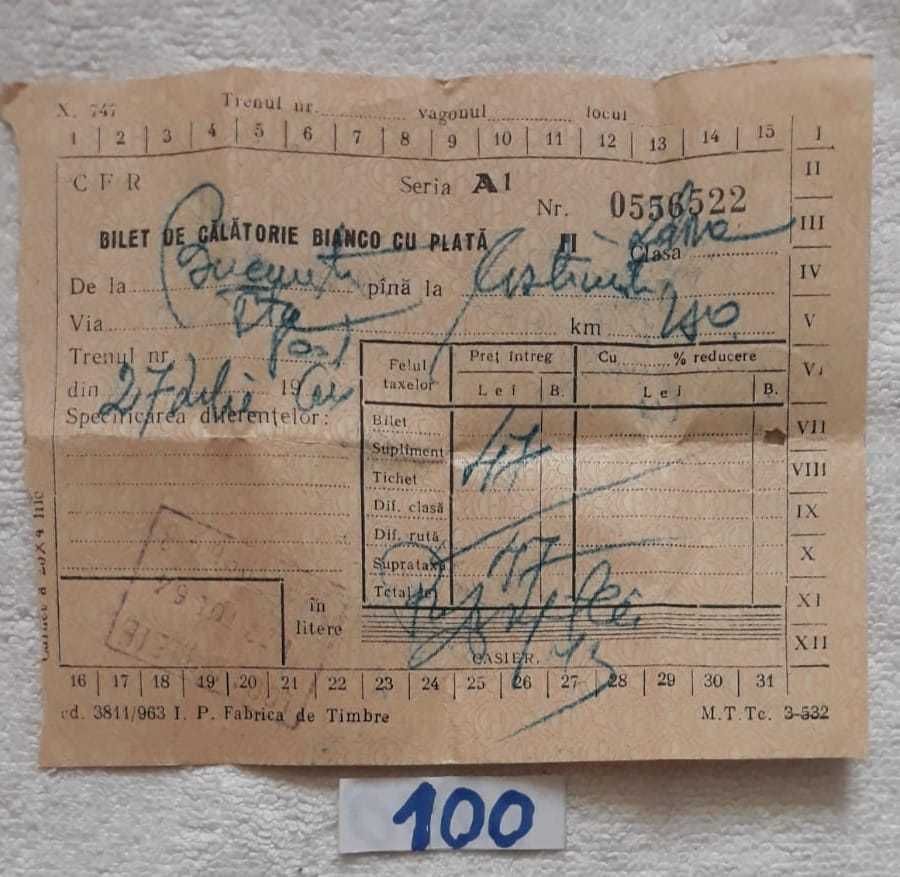 X. 747 Trenul nr. vagonul locul
1 2 3 4 5 6 7 8 9 10 11 12 13 14 15 I
II
C F R Seria A1
Nr. 0556522
III
BILET DE CĂLĂTORIE BIANCO CU PLATĂ II Clasa
IV
De la București pînă la Costinești
Via km
V
Trenul nr.
din 27 Iulie 19
Felul taxelor Preț întreg Cu % reducere
VI
Lei B. Lei B.
Specificarea diferențelor:
Bilet 47
VII
Supliment
VIII
Tichet
Dif. clasă
IX
Dif. rută
X
Suprataxă
Total lei 47
XI
în litere
XII
CASIER,
16 17 18 19 20 21 22 23 24 25 26 27 28 29 30 31
cd. 3811/963 I. P. Fabrica de Timbre M.T.Tc. 3-532
100